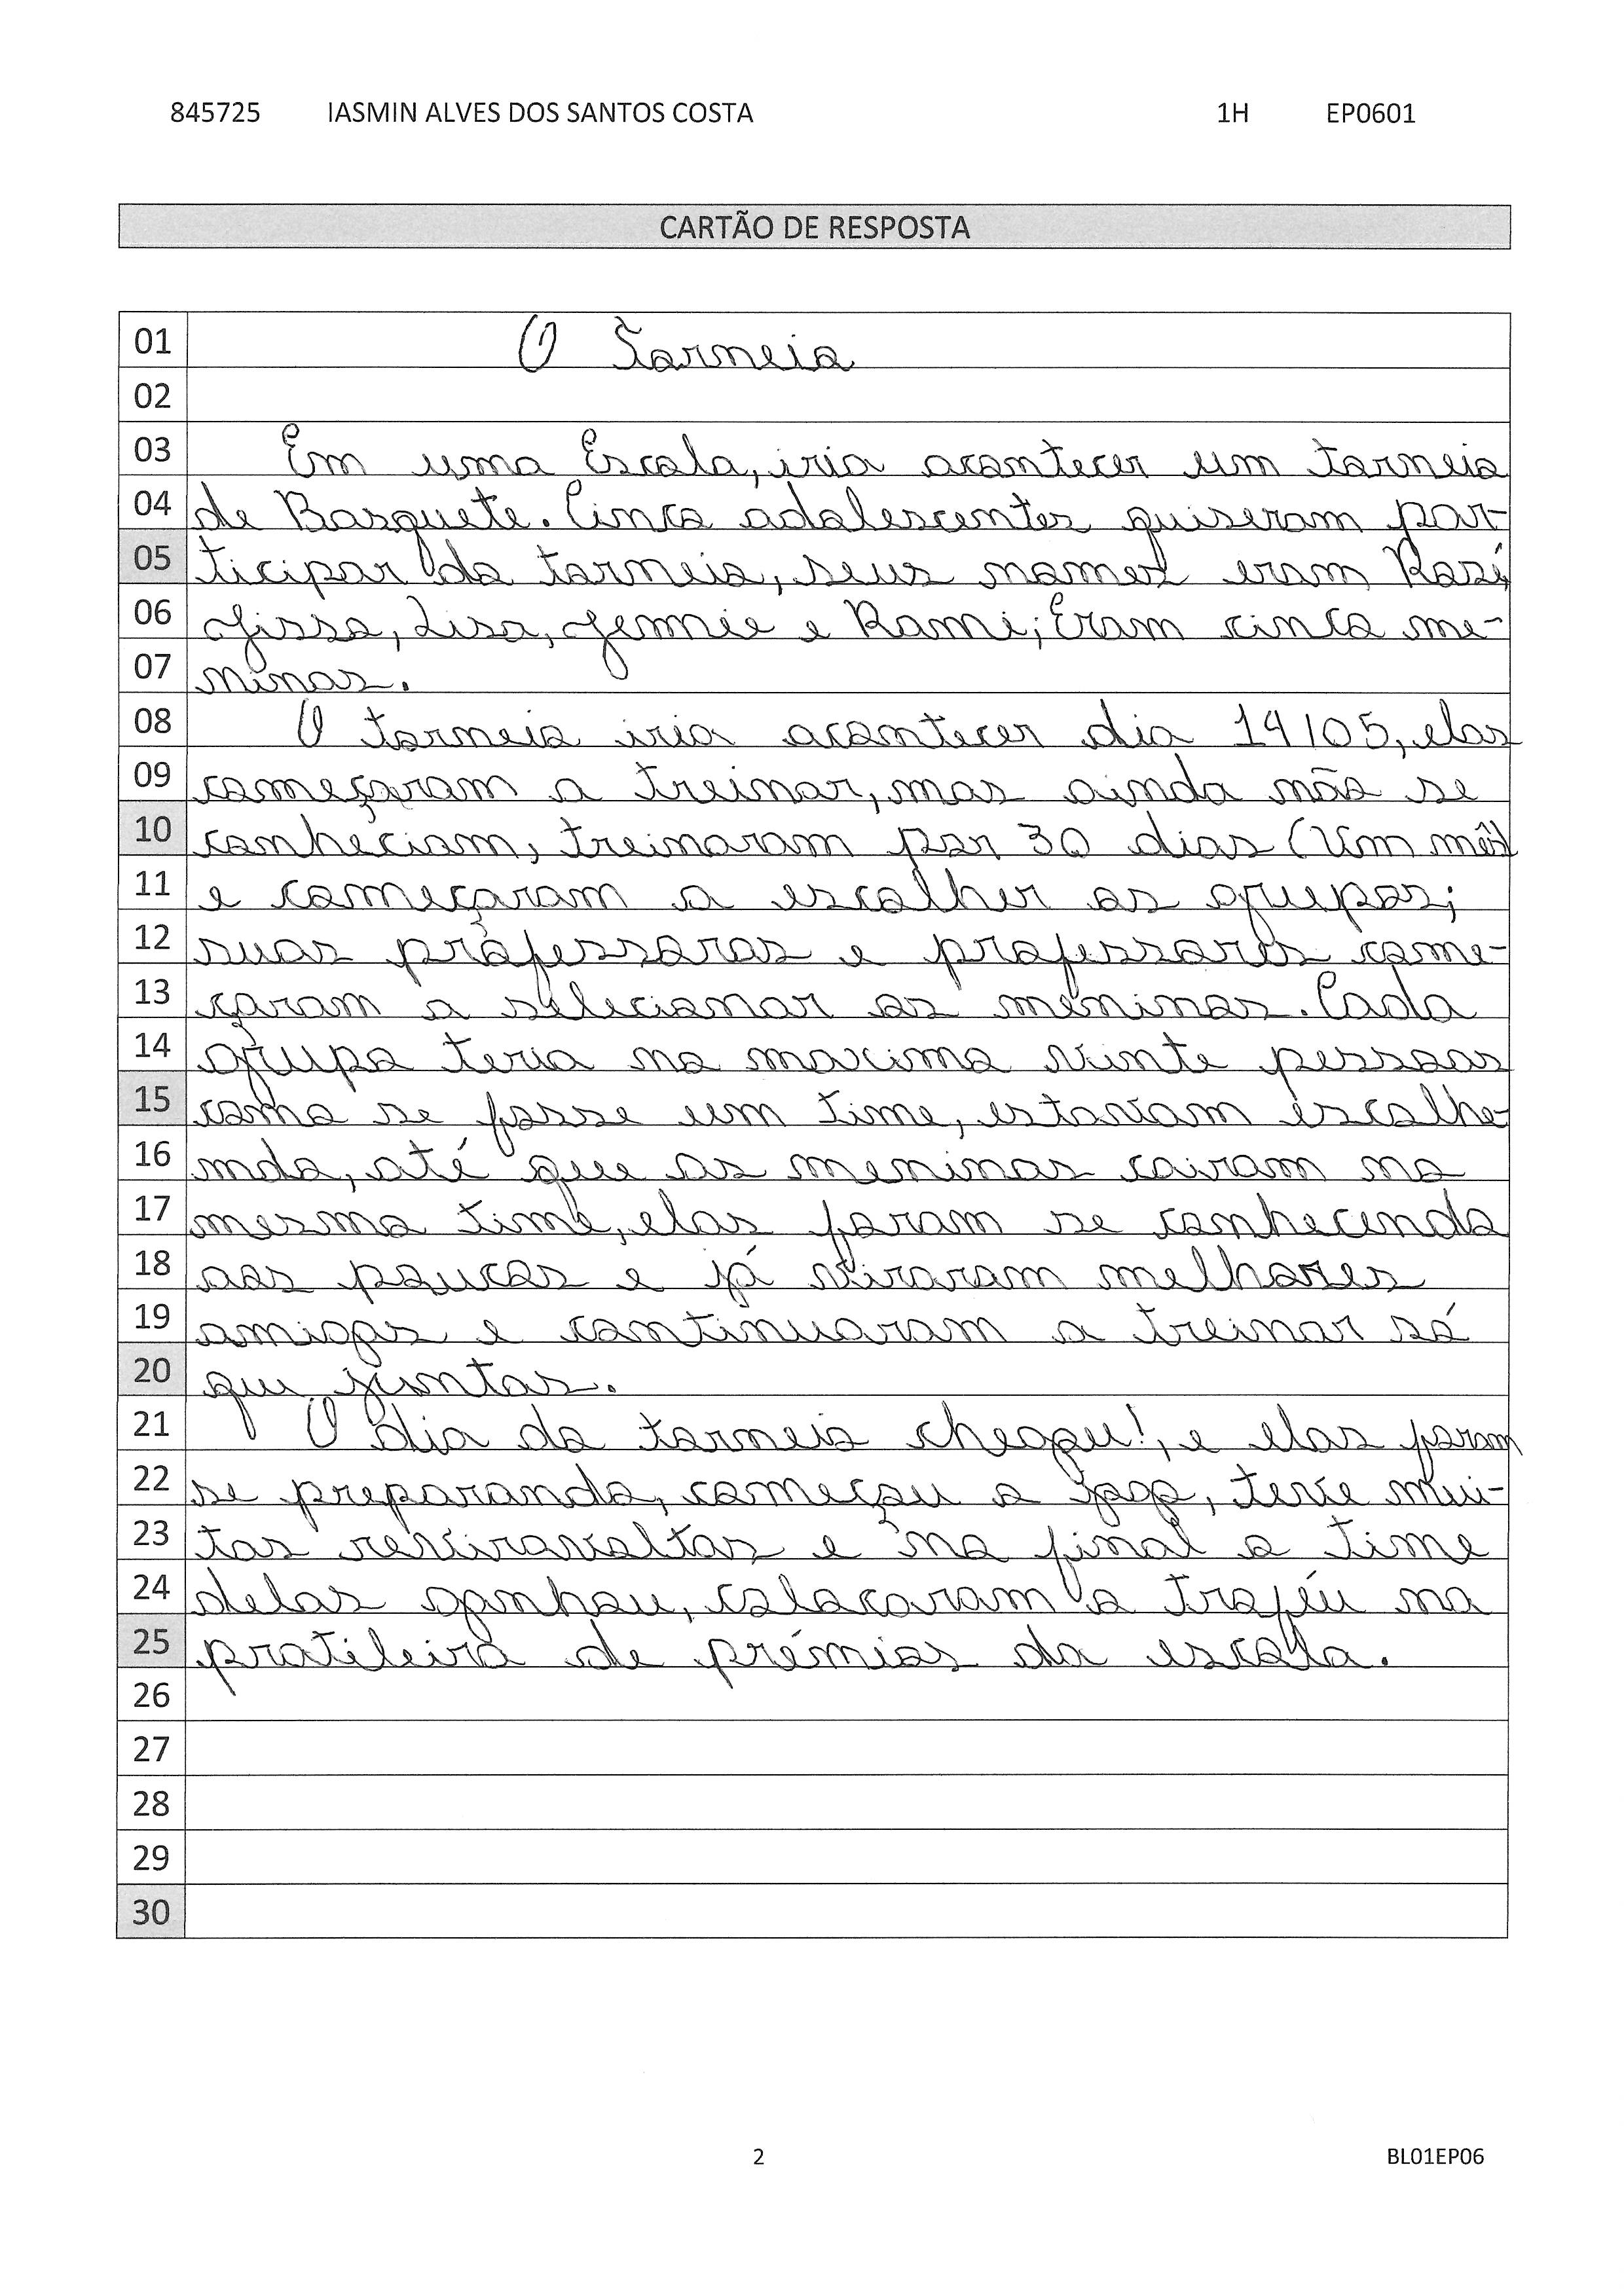 845725 IASMIN ALVES DOS SANTOS COSTA 1H EP0601
CARTÃO DE RESPOSTA
01 O Torneio
02
03 Em uma Escola, iria acontecer um torneio
04 de Basquete. Cinco adolescentes quiseram par-
05 ticipar do torneio, seus nomes eram Rosé,
06 Jisso, Lisa, Jennie e Rami; Eram cinco me-
07 ninas.
08 O torneio iria acontecer dia 14/05, elas
09 começaram a treinar, mas ainda não se
10 conheciam, treinaram por 30 dias (Um mês)
11 e começaram a escolher os grupos;
12 suas professoras e professores come-
13 çaram a selecionar as meninas. Cada
14 grupo teria no maximo vinte pessoas
15 como se fosse um time, estavam escolhe-
16 ndo, até que as meninas cairam no
17 mesmo time, elas foram se conhecendo
18 aos poucos e já viraram melhores
19 amigas e continuaram a treinar só
20 que juntas.
21 O dia do torneio chegou!, e elas foram
22 se preparando, começou o jogo, teve mui-
23 tas reviravoltas e no final o time
24 delas ganhou, colocaram o troféu na
25 pratileira de prémios da escola.
26
27
28
29
30
2 BL01EP06